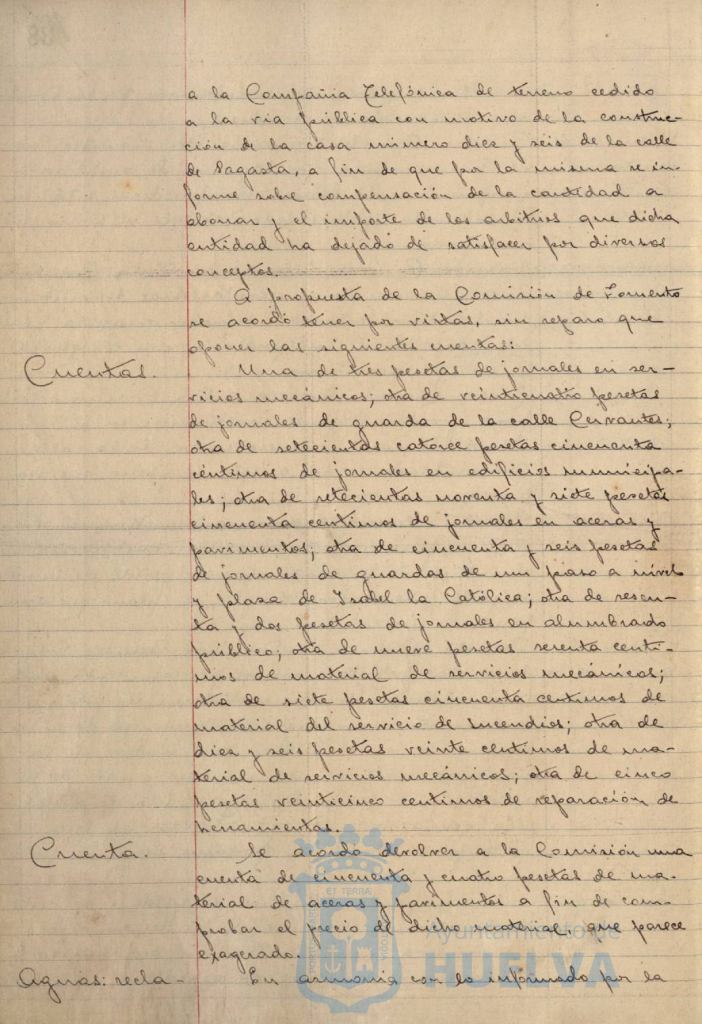 a la Compañia Telefónica de terreno cedido
a la via pública con motivo de la construc-
ción de la casa número diez y seis de la calle
de Sagasta, a fin de que por la misma se in-
forme sobre compensación de la cantidad a
abonar y el importe de los arbitrios que dicha
entidad ha dejado de satisfacer por diversos
conceptos.
A propuesta de la Comisión de Fomento
se acordó tener por vistas, sin reparo que
oponer las siguientes cuentas:
Cuentas. Una de tres pesetas de jornales en ser-
vicios mecánicos; otra de veinticuatro pesetas
de jornales de guarda de la calle Cervantes;
otra de setecientas catorce pesetas cincuenta
céntimos de jornales en edificios municipa-
les; otra de setecientas noventa y siete pesetas
cincuenta centimos de jornales en aceras y
pavimentos; otra de cincuenta y seis pesetas
de jornales de guardas de un paso a nivel
y plaza de Isabel la Católica; otra de sesen-
ta y dos pesetas de jornales en alumbrado
público; otra de nueve pesetas sesenta centi-
mos de material de servicios mecánicos;
otra de siete pesetas cincuenta centimos de
material del servicio de Incendios; otra de
diez y seis pesetas veinte centimos de ma-
terial de servicios mecánicos; otra de cinco
pesetas veinticinco centimos de reparación de
herramientas.
Cuenta. Se acordo devolver a la Comisión una
cuenta de cincuenta y cuatro pesetas de ma-
terial de aceras y pavimentos a fin de com-
probar el precio de dicho material, que parece
exagerado.
Aguas: recla- En armonia con lo informado por la
Ayuntamiento de
HUELVA